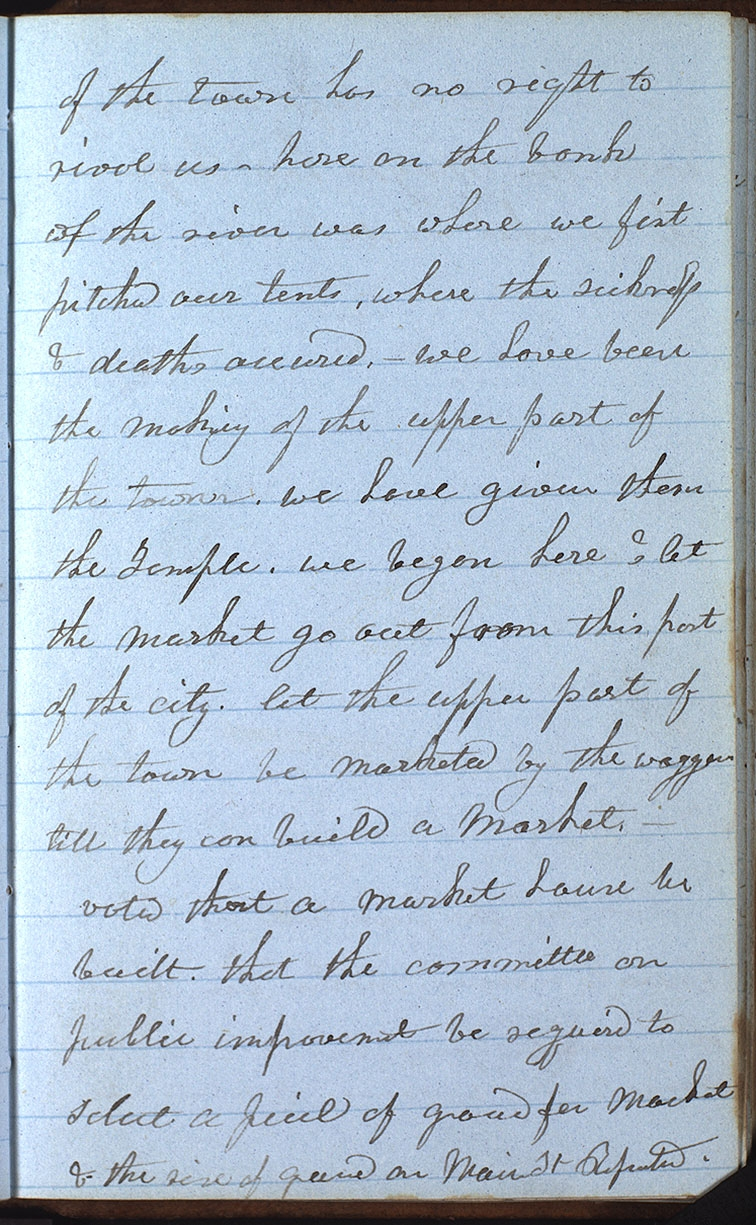 of the town has no right to
rival us - here on the bank
of the river was where we fist
pitchd our tents, where the sickness
& deaths occured, - we have been
the making of the upper part of
the town. we have given them
the Temple. we began here & let
the market go out from this part
of the city. let the upper part of
the town be marketed by the waggon
till they can build a Market. -
voted that a market house be
built. that the committee on
public improvemnt be requird to
select a piece of ground for Market
& the size of ground on Main St Reported.